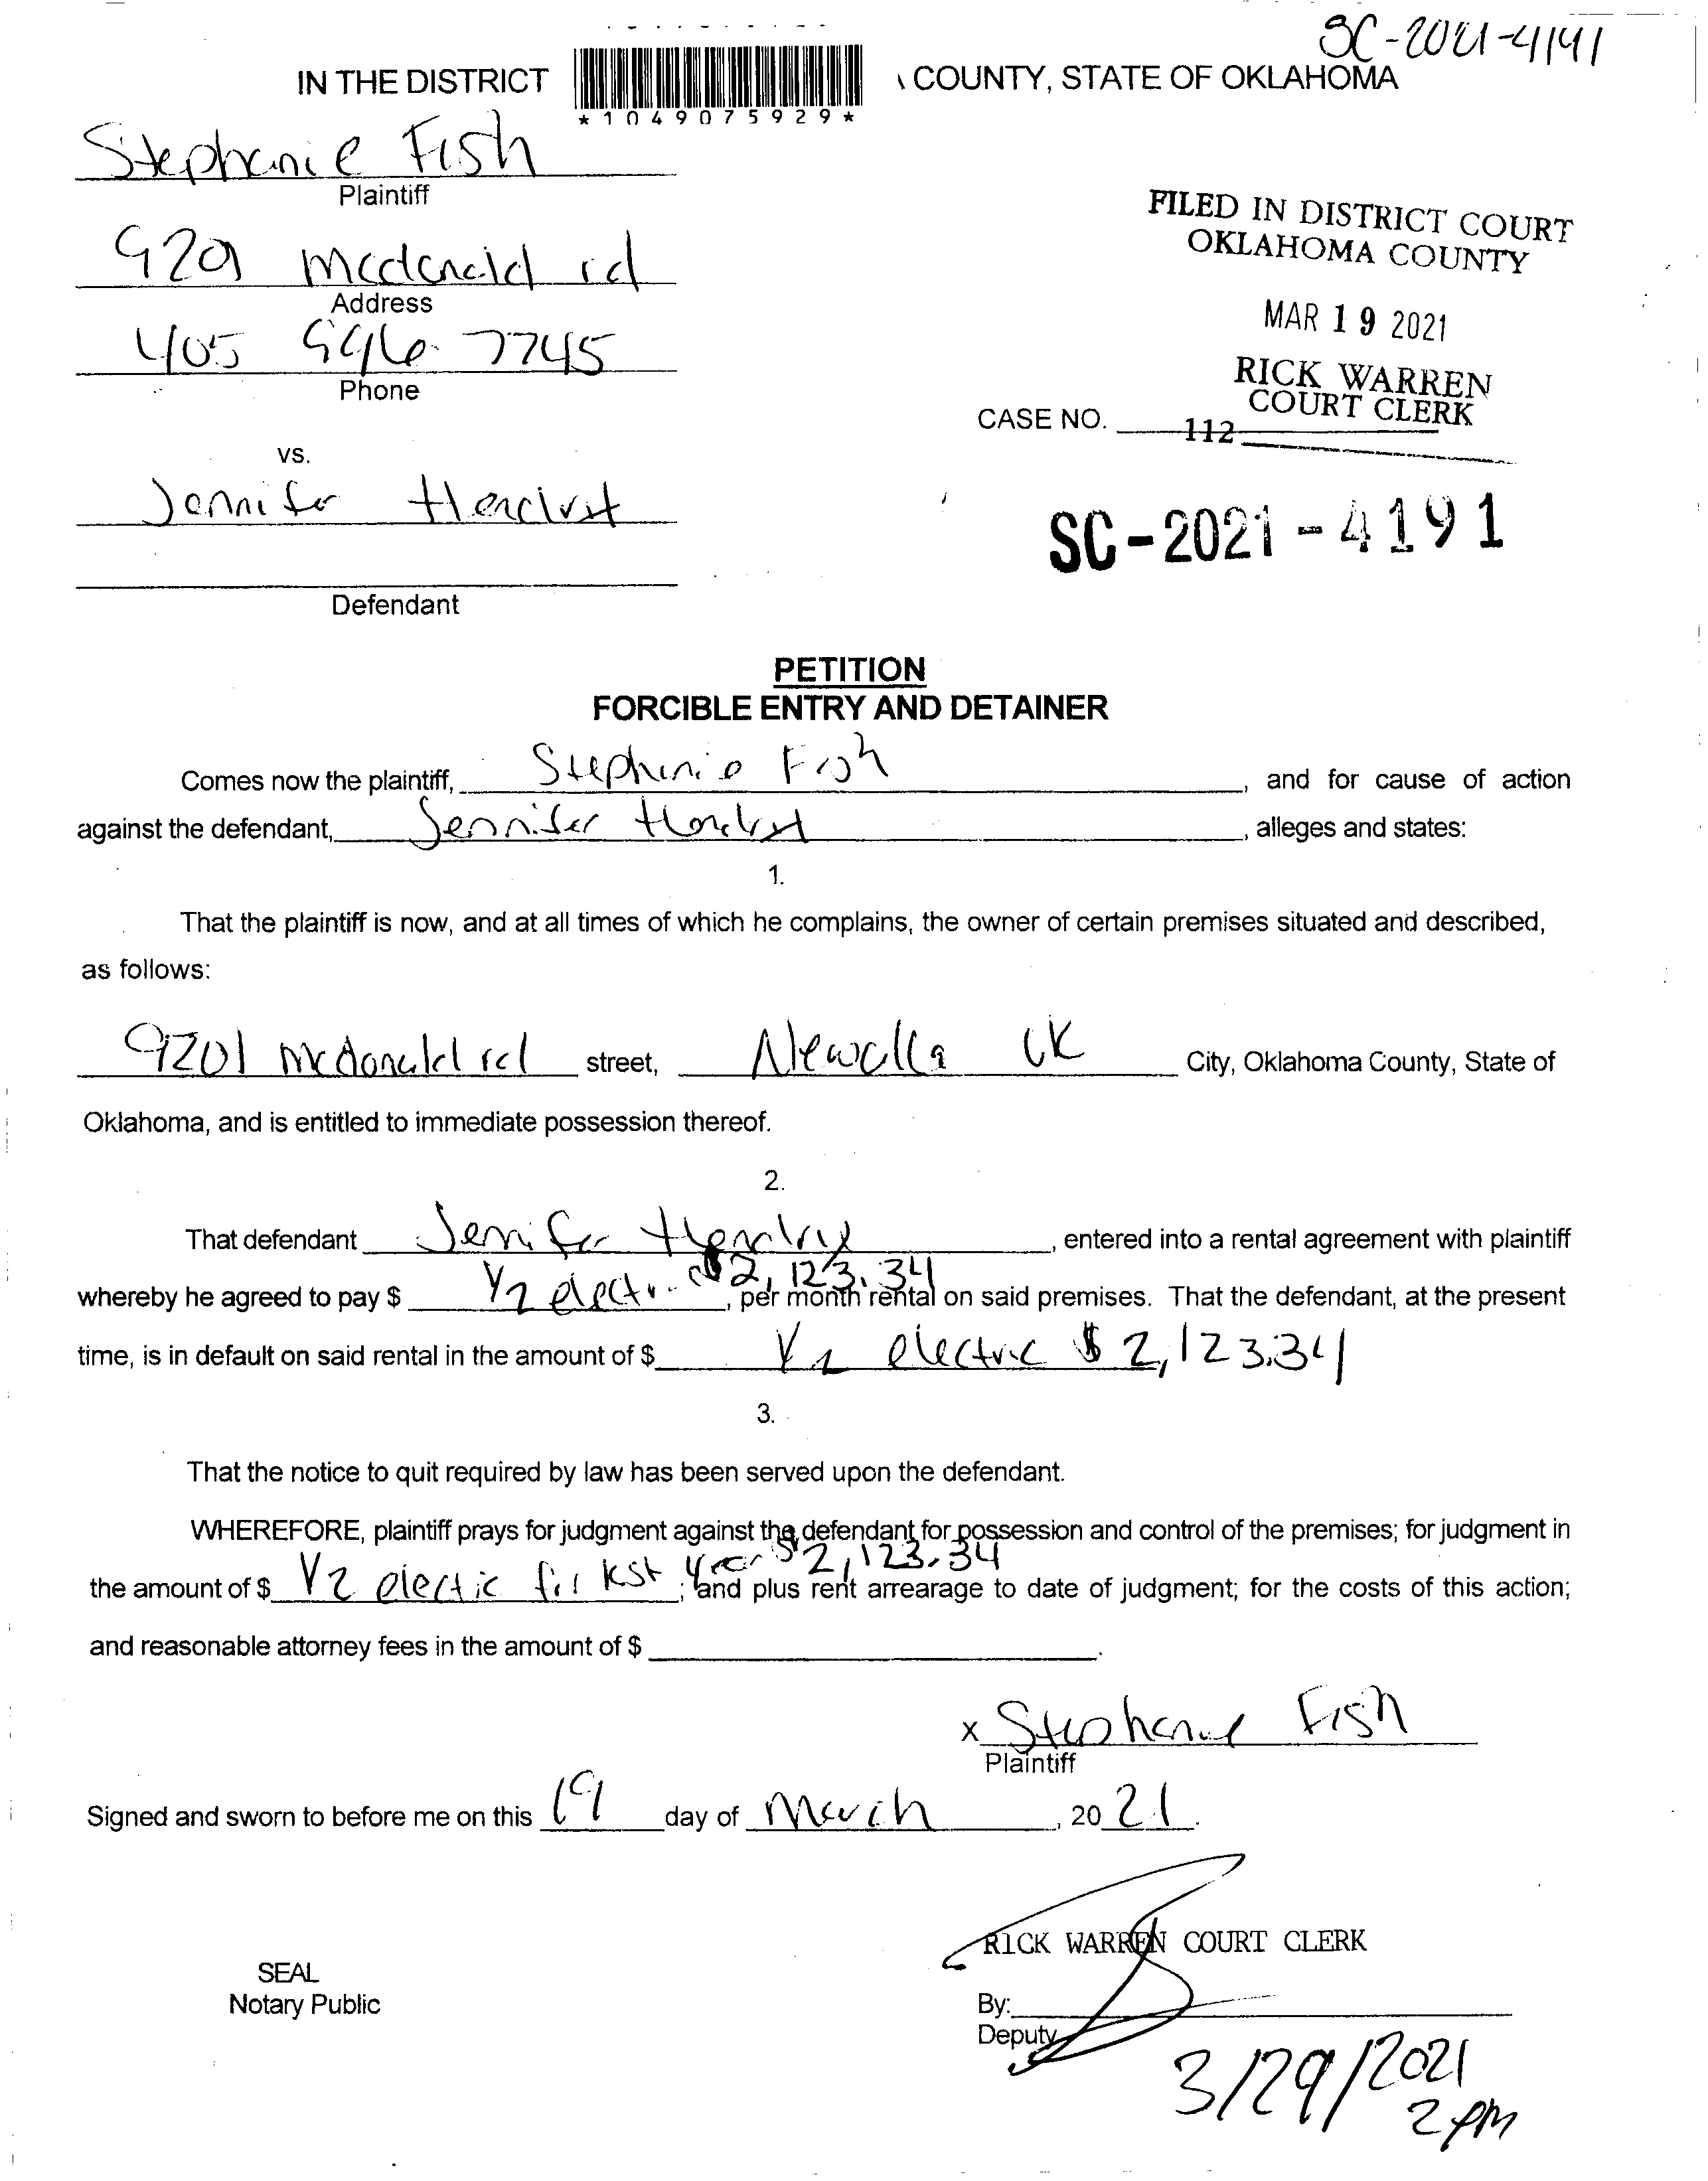 SC-2021-4191
IN THE DISTRICT COUNTY, STATE OF OKLAHOMA
*1049075929*
Stephanie Fish
Plaintiff
9201 mcdonald rd
Address
405 996 7745
Phone
FILED IN DISTRICT COURT
OKLAHOMA COUNTY
MAR 19 2021
RICK WARREN
COURT CLERK
CASE NO. 112
vs.
Jennifer
SC-2021-4191
Defendant
PETITION
FORCIBLE ENTRY AND DETAINER
Comes now the plaintiff, Stephanie Fish, and for cause of action
against the defendant, Jennifer, alleges and states:
1.
That the plaintiff is now, and at all times of which he complains, the owner of certain premises situated and described,
as follows:
9201 mcdonald rd street, Newalla OK City, Oklahoma County, State of
Oklahoma, and is entitled to immediate possession thereof.
2.
That defendant Jennifer, entered into a rental agreement with plaintiff
whereby he agreed to pay $ 1/2 electric $2,123.34, per month rental on said premises. That the defendant, at the present
time, is in default on said rental in the amount of $ 1/2 electric $2,123.34
3.
That the notice to quit required by law has been served upon the defendant.
WHEREFORE, plaintiff prays for judgment against the defendant for possession and control of the premises; for judgment in
the amount of $ 1/2 electic for last year $2,123.34; and plus rent arrearage to date of judgment; for the costs of this action;
and reasonable attorney fees in the amount of $ .
x Stephanie Fish
Plaintiff
Signed and sworn to before me on this 19 day of March, 2021.
RICK WARREN COURT CLERK
SEAL
Notary Public
By:
Deputy
3/29/2021
2 pm